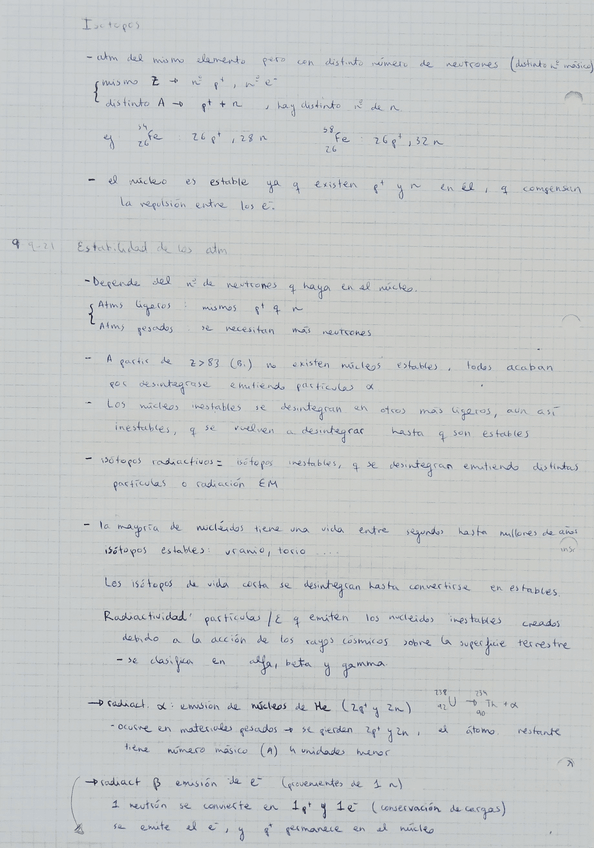 Isótopos
- atm del mismo elemento pero con distinto número de neutrones (distinto nº másico)
{ mismo Z → nº p⁺, nº e⁻
distinto A → p⁺ + n , hay distinto nº de n
ej ⁵⁴₂₆Fe : 26 p⁺, 28 n ⁵⁸₂₆Fe : 26 p⁺, 32 n
- el núcleo es estable ya q existen p⁺ y n en él, q compensan
la repulsión entre los e⁻.
Estabilidad de los atm
- Depende del nº de neutrones q haya en el núcleo.
{ Atms ligeros : mismos p⁺ q n
Atms pesados : se necesitan más neutrones
- A partir de Z>83 (Bi) no existen núcleos estables, todos acaban
por desintegrase emitiendo partículas α
- Los núcleos inestables se desintegran en otros más ligeros, aun así
inestables, q se vuelven a desintegrar hasta q son estables
- isótopos radiactivos = isótopos inestables, q se desintegran emitiendo distintas
partículas o radiación EM
- la mayoría de nucléidos tiene una vida entre segundos hasta millones de años
isótopos estables: uranio, torio ....
Los isótopos de vida corta se desintegran hasta convertirse en estables.
Radiactividad: partículas / E q emiten los nucleidos inestables creados
debido a la acción de los rayos cósmicos sobre la superficie terrestre
- se clasifica en alfa, beta y gamma.
→ radiact. α: emisión de núcleos de He (2p⁺ y 2n) ²³⁸₉₂U → ²³⁴₉₀Th + α
- ocurre en materiales pesados → se pierden 2p⁺ y 2n, el átomo restante
tiene número másico (A) 4 unidades menor
→ radiact β emisión de e⁻ (provenientes de 1 n)
1 neutrón se convierte en 1p⁺ y 1e⁻ (conservación de cargas)
se emite el e⁻, y p⁺ permanece en el núcleo